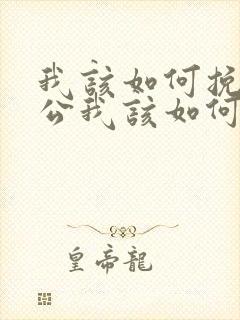 我該如何挽
公我該如何
皇帝龍